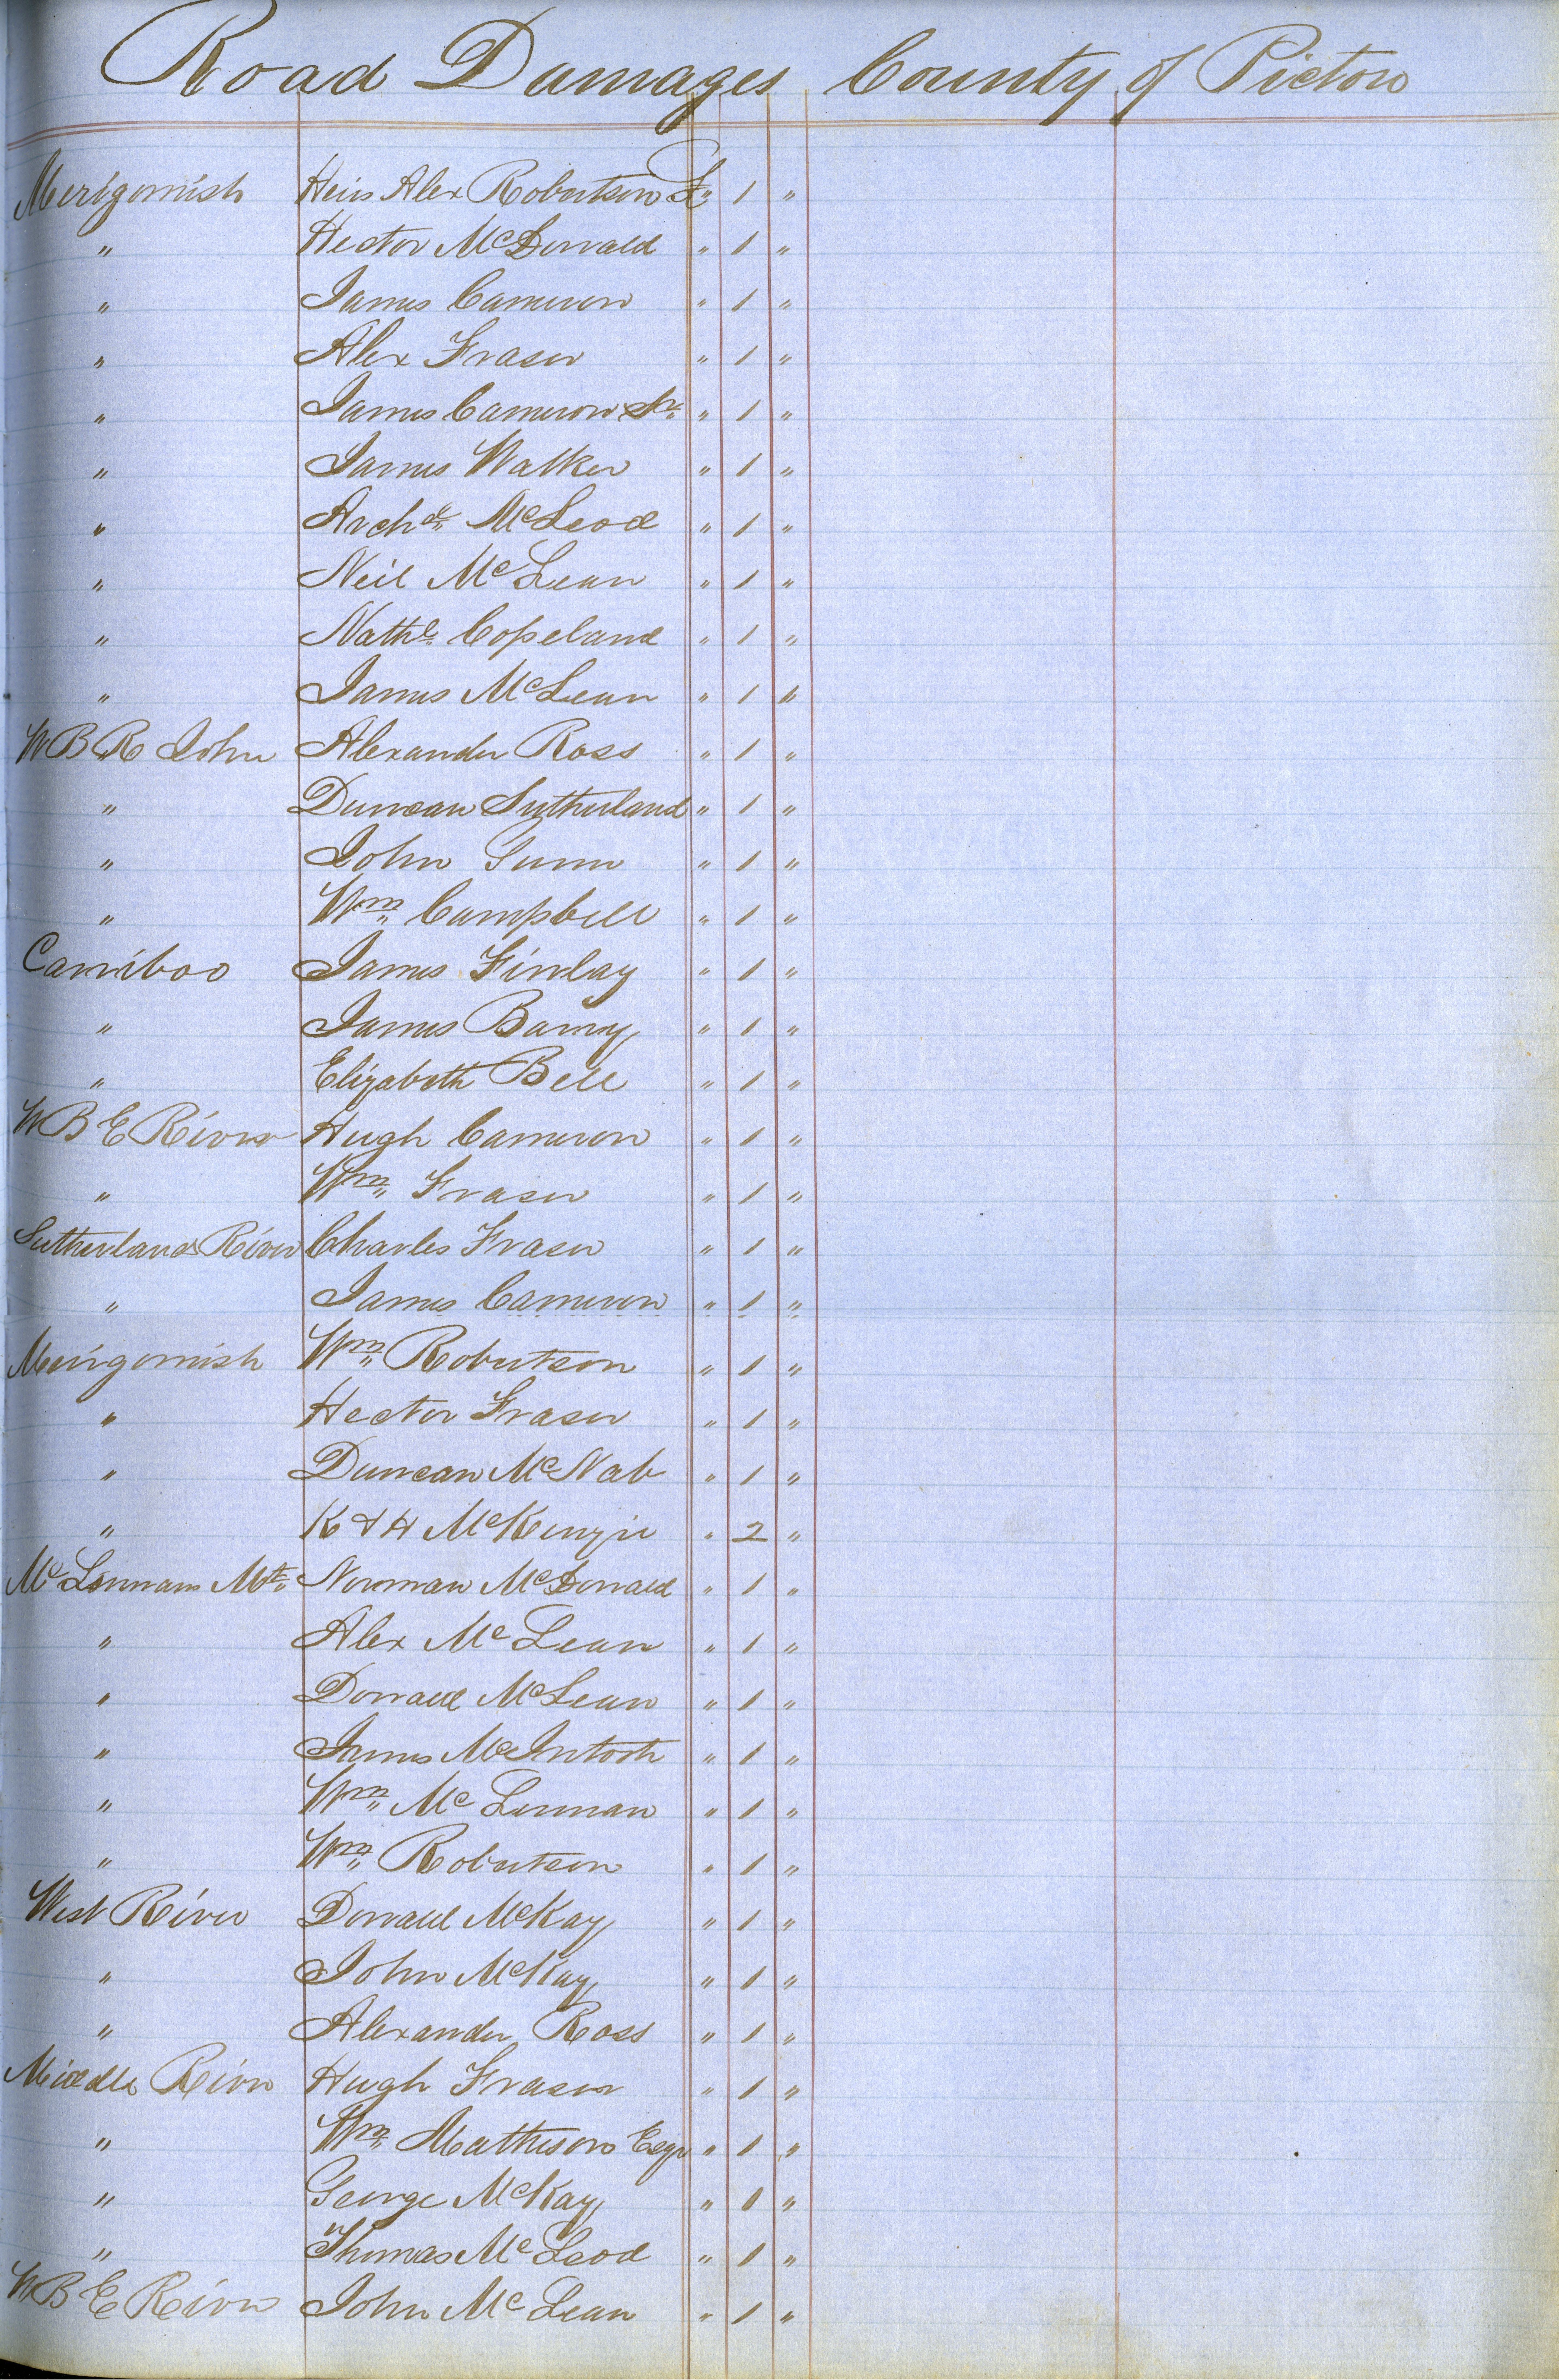 Road Damages County of Pictou
Merigomish Heirs Alex Robertson £ " 1 "
" Hector McDonald " 1 "
" James Cameron " 1 "
" Alex Fraser " 1 "
" James Cameron Sr " 1 "
" James Walker " 1 "
" Archd McLeod " 1 "
" Neil McLean " 1 "
" Nathl Copeland " 1 "
" James McLean " 1 "
W B R John Alexander Ross " 1 "
" Duncan Sutherland " 1 "
" John Gunn " 1 "
" Wm Campbell " 1 "
Carriboo James Finlay " 1 "
" James Barry " 1 "
" Elizabeth Bell " 1 "
W B E River Hugh Cameron " 1 "
" Wm Fraser " 1 "
Sutherlands River Charles Fraser " 1 "
" James Cameron " 1 "
Merigomish Wm Robertson " 1 "
" Hector Fraser " 1 "
" Duncan McNab " 1 "
" K & H McKenzie " 2 "
McLennans Mt Norman McDonald " 1 "
" Alex McLean " 1 "
" Donald McLean " 1 "
" James McIntosh " 1 "
" Wm McLennan " 1 "
" Wm Robertson " 1 "
West River Donald McKay " 1 "
" John McKay " 1 "
" Alexander Ross " 1 "
Middle River Hugh Fraser " 1 "
" Wm Matheson Esqr " 1 "
" George McKay " 1 "
" Thomas McLeod " 1 "
W B E River John McLean " 1 "